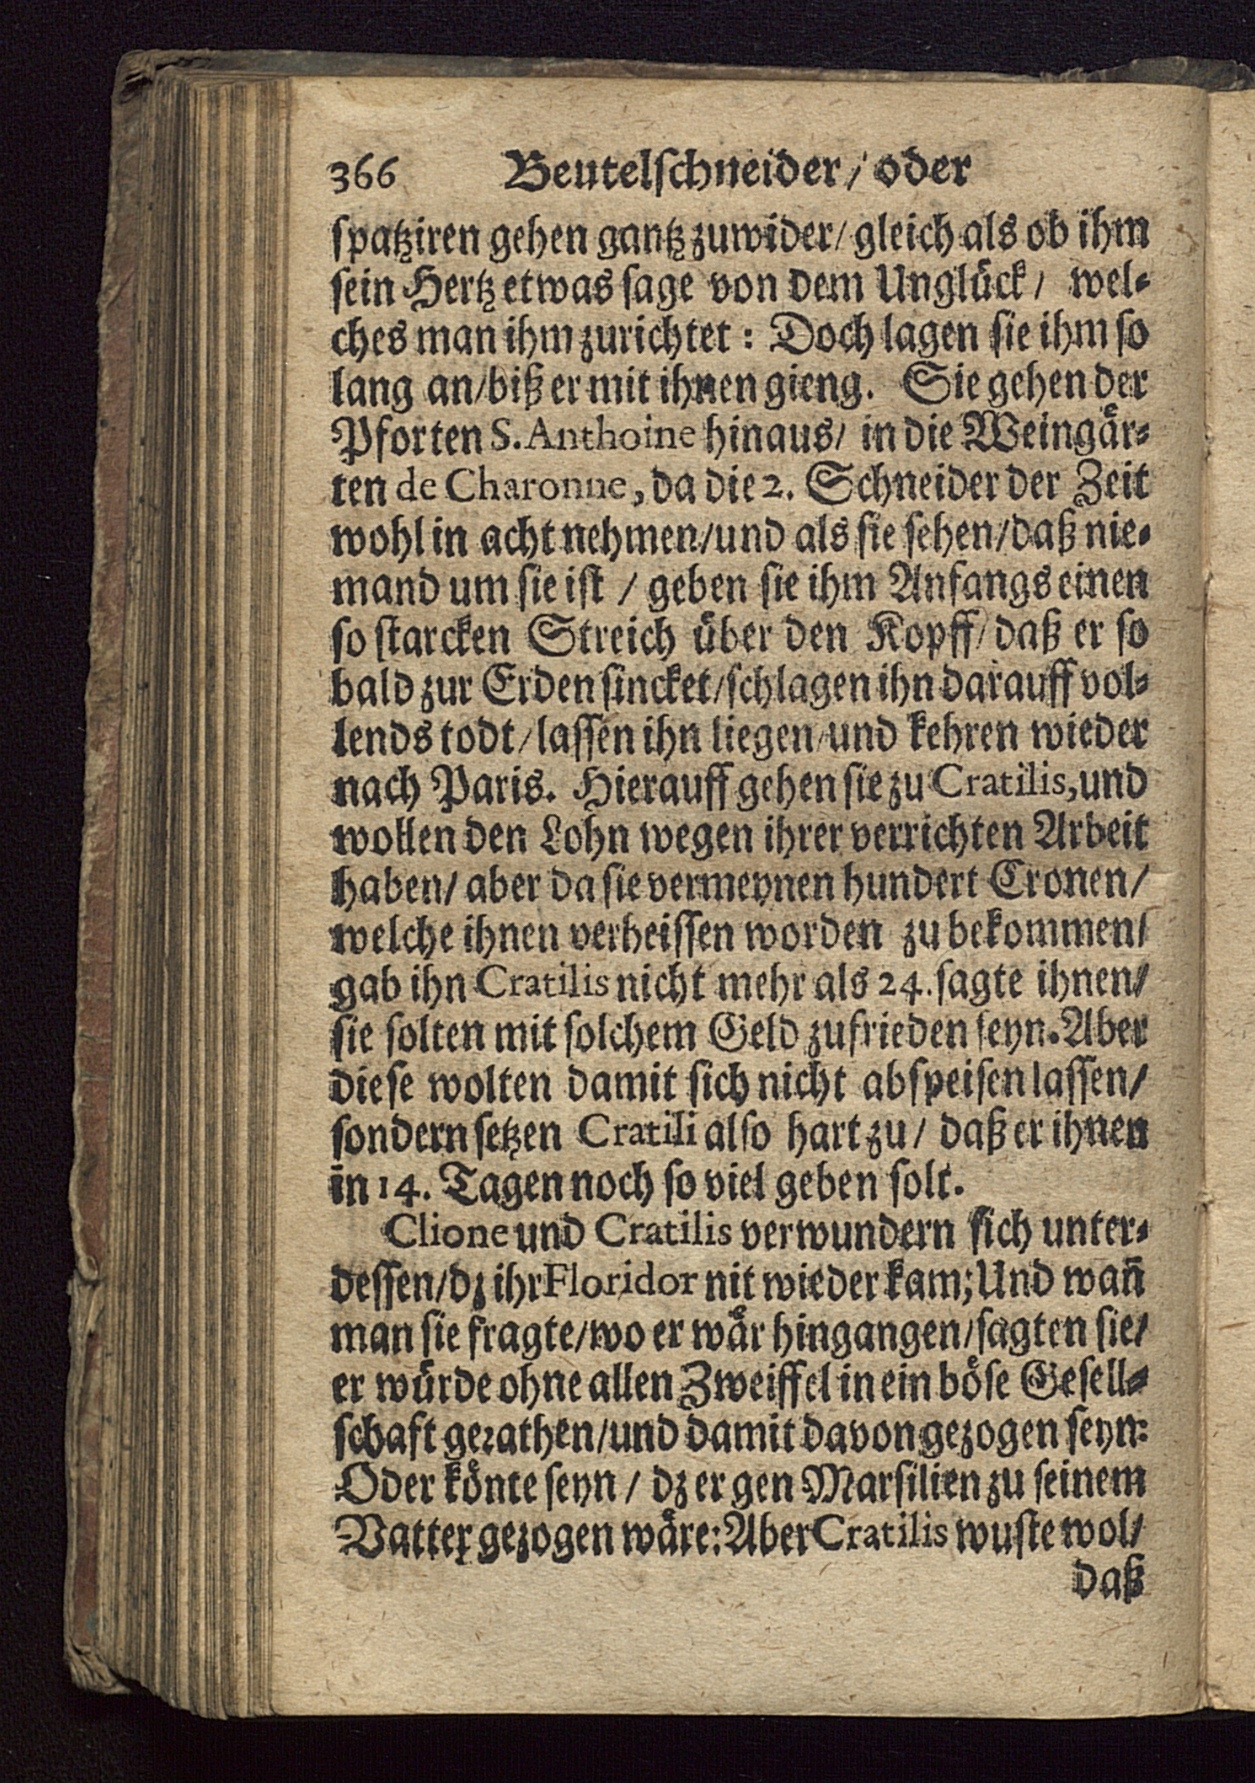 366 Beutelschneider/ oder
spatziren gehen gantz zuwider/ gleich als ob ihm
sein Hertz etwas sage von dem Unglück/ wel-
ches man ihm zurichtet: Doch lagen sie ihm so
lang an/biß er mit ihnen gieng. Sie gehen der
Pforten S. Anthoine hinaus/ in die Weingär-
ten de Charonne, da die 2. Schneider der Zeit
wohl in acht nehmen/und als sie sehen/daß nie-
mand um sie ist / geben sie ihm Anfangs einen
so starcken Streich über den Kopff/ daß er so
bald zur Erden sincket/schlagen ihn darauff vol-
lends todt/lassen ihn liegen/und kehren wieder
nach Paris. Hierauff gehen sie zu Cratilis, und
wollen den Lohn wegen ihrer verrichten Arbeit
haben/ aber da sie vermeynen hundert Cronen/
welche ihnen verheissen worden zu bekommen/
gab ihn Cratilis nicht mehr als 24. sagte ihnen/
sie solten mit solchem Geld zufrieden seyn. Aber
diese wolten damit sich nicht abspeisen lassen/
sondern setzen Cratili also hart zu/ daß er ihnen
in 14. Tagen noch so viel geben solt.
Clione und Cratilis verwundern sich unter-
dessen/dz ihr Floridor nit wieder kam; Und wañ
man sie fragte/wo er wär hingangen/sagten sie/
er würde ohne allen Zweiffel in ein böse Gesell-
schaft gerathen/und damit davon gezogen seyn:
Oder könte seyn / dz er gen Marsilien zu seinem
Vatter gezogen wäre: Aber Cratilis wuste wol/
daß